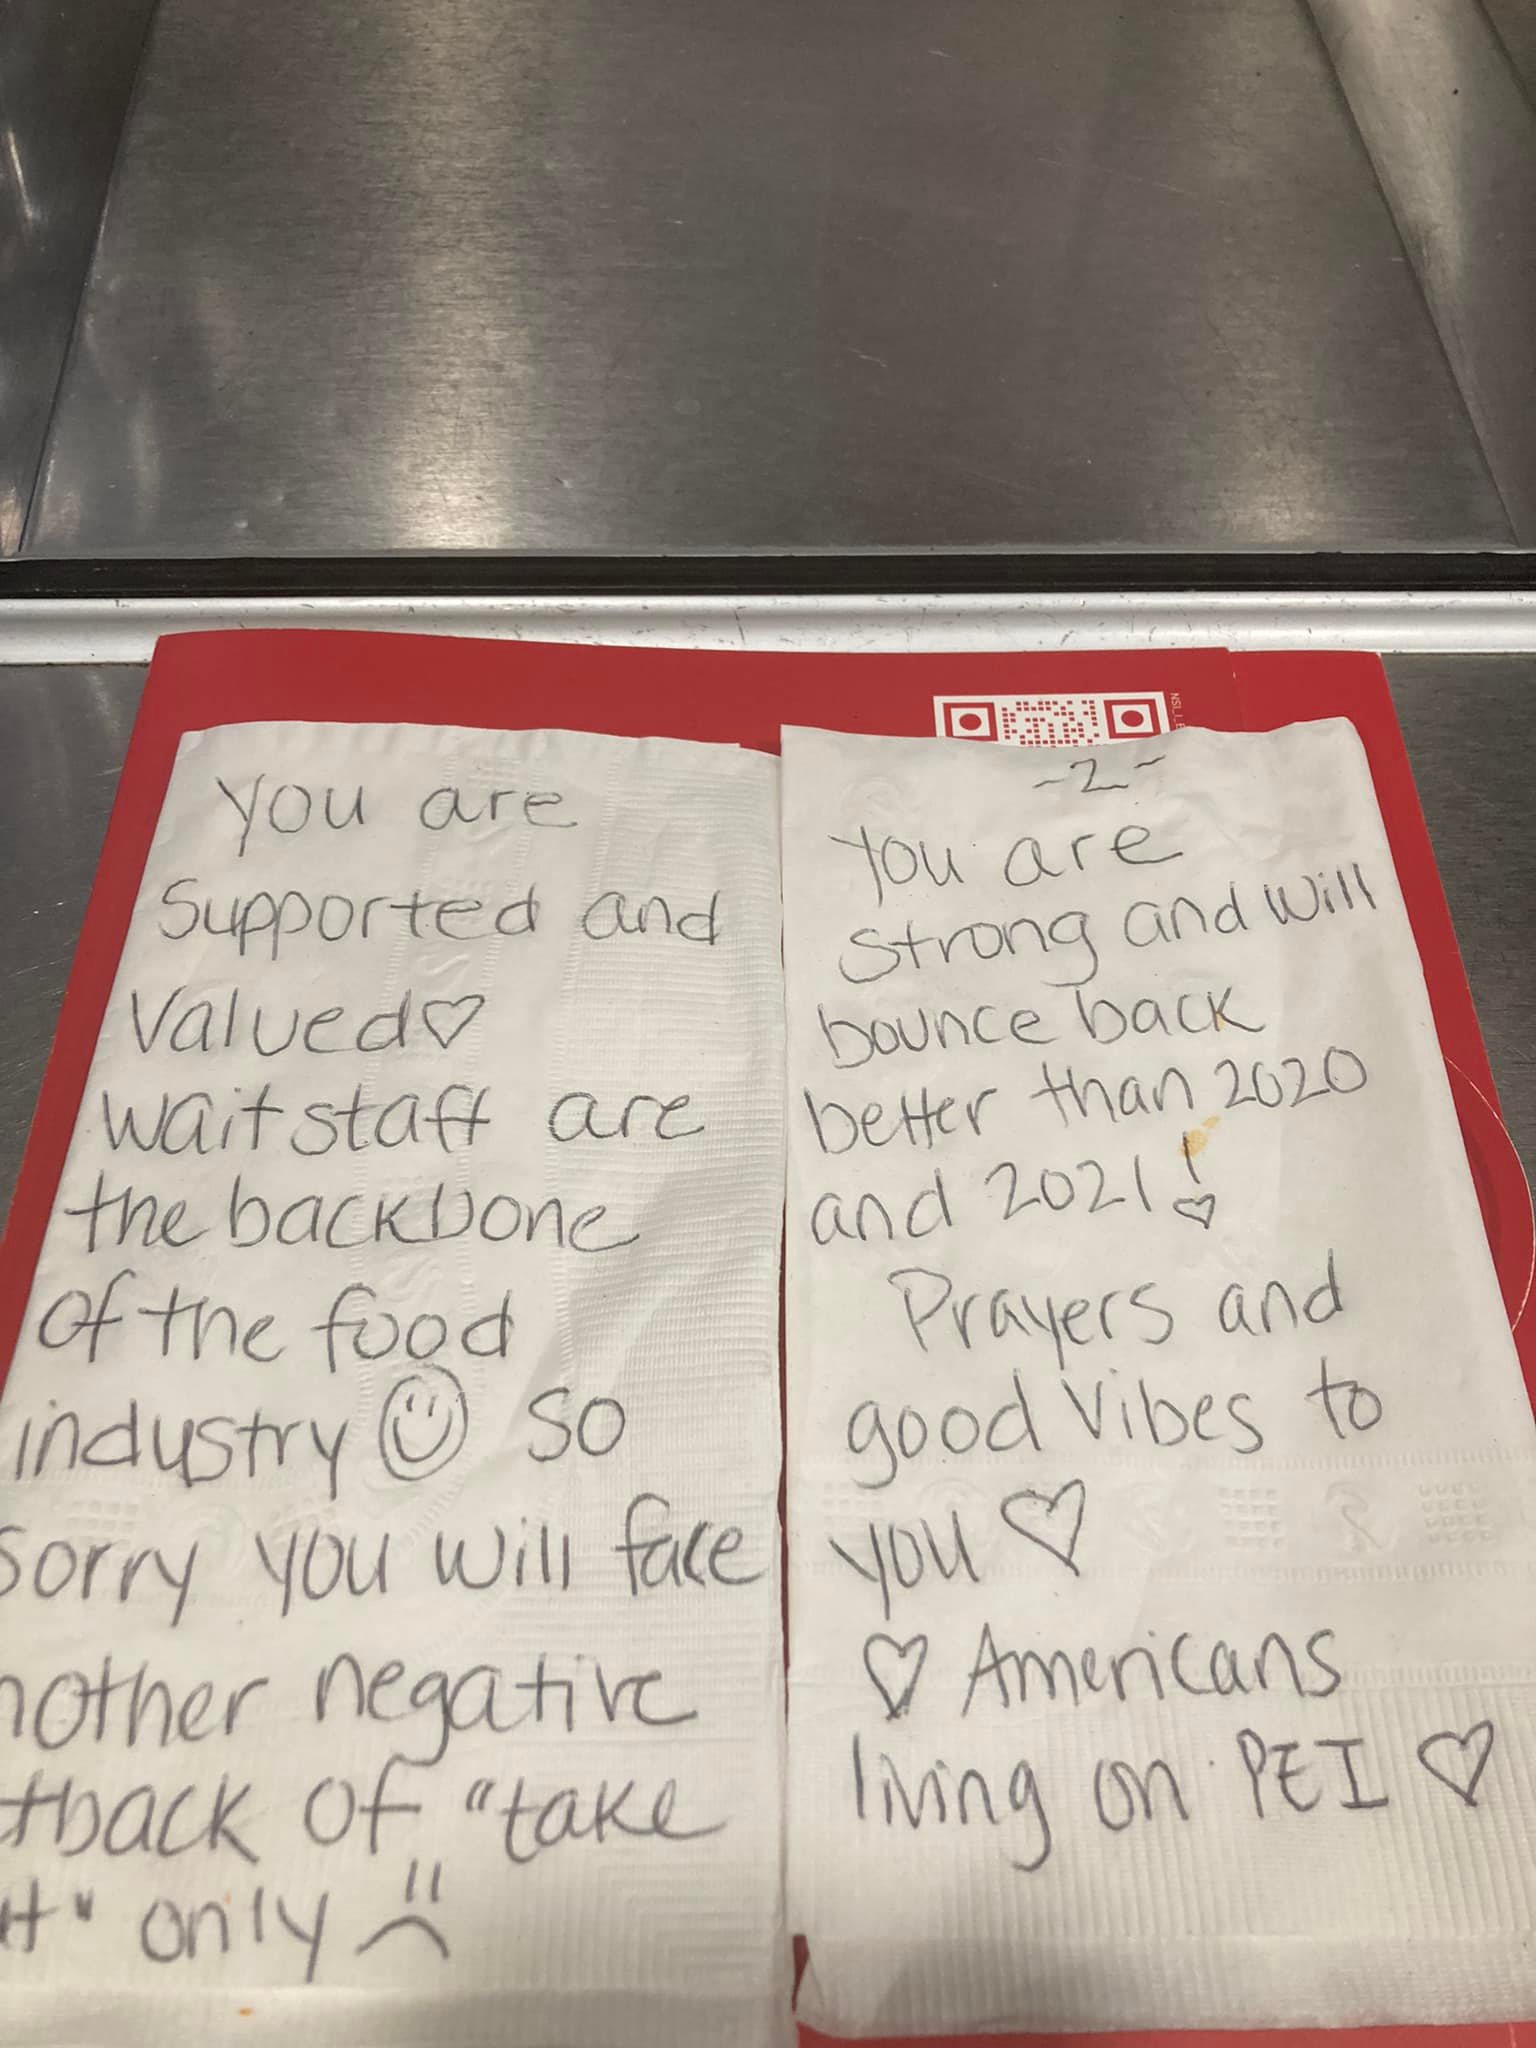 You are
Supported and
Valued♡
wait staff are
the backbone
of the food
industry ☺ so
sorry you will face
nother negative
tback of "take
ut" only ☹
-2-
You are
strong and will
bounce back
better than 2020
and 2021!
Prayers and
good vibes to
you ♡
♡ Americans
living on PEI ♡